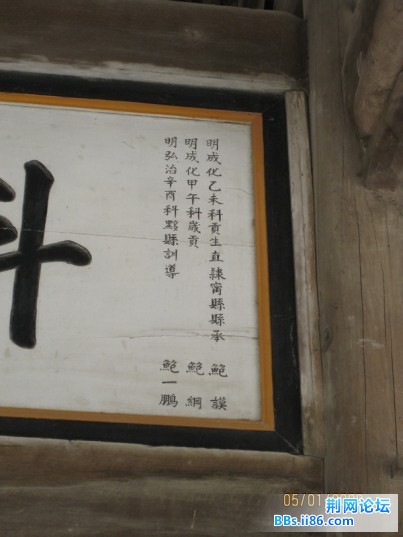 明成化乙未科貢生直隸甯縣縣承 鮑謨
明成化甲午科歲貢 鮑綱
明弘治辛酉科黟縣訓導 鮑一鵬
科
05/01
荆网论坛
BBs.ii86.com